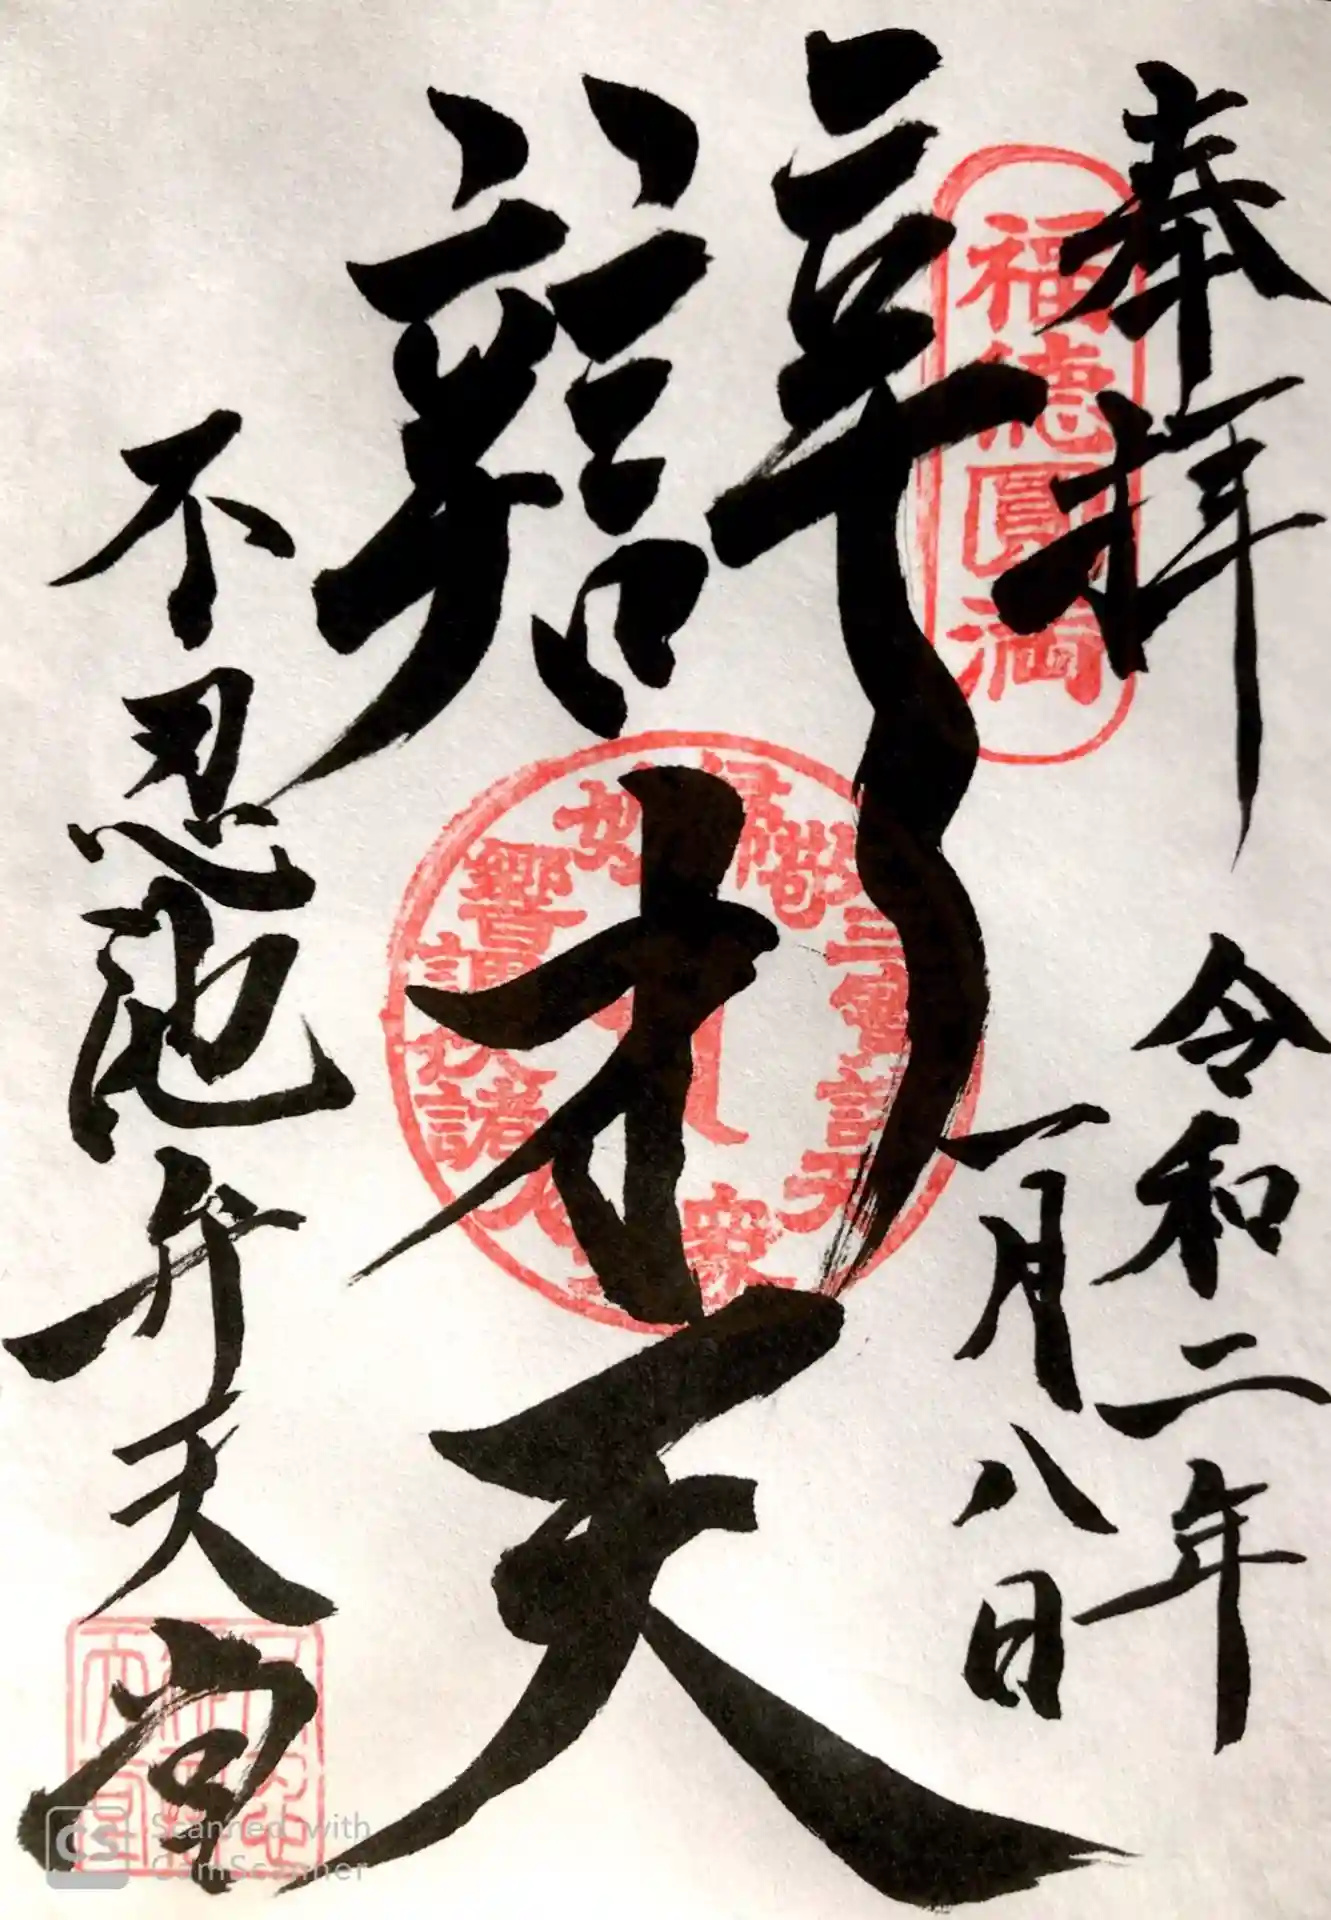 奉拝
福徳圓満
令和二年
一月八日
辯才天
不忍池弁天堂
Scanned with
CamScanner
CS